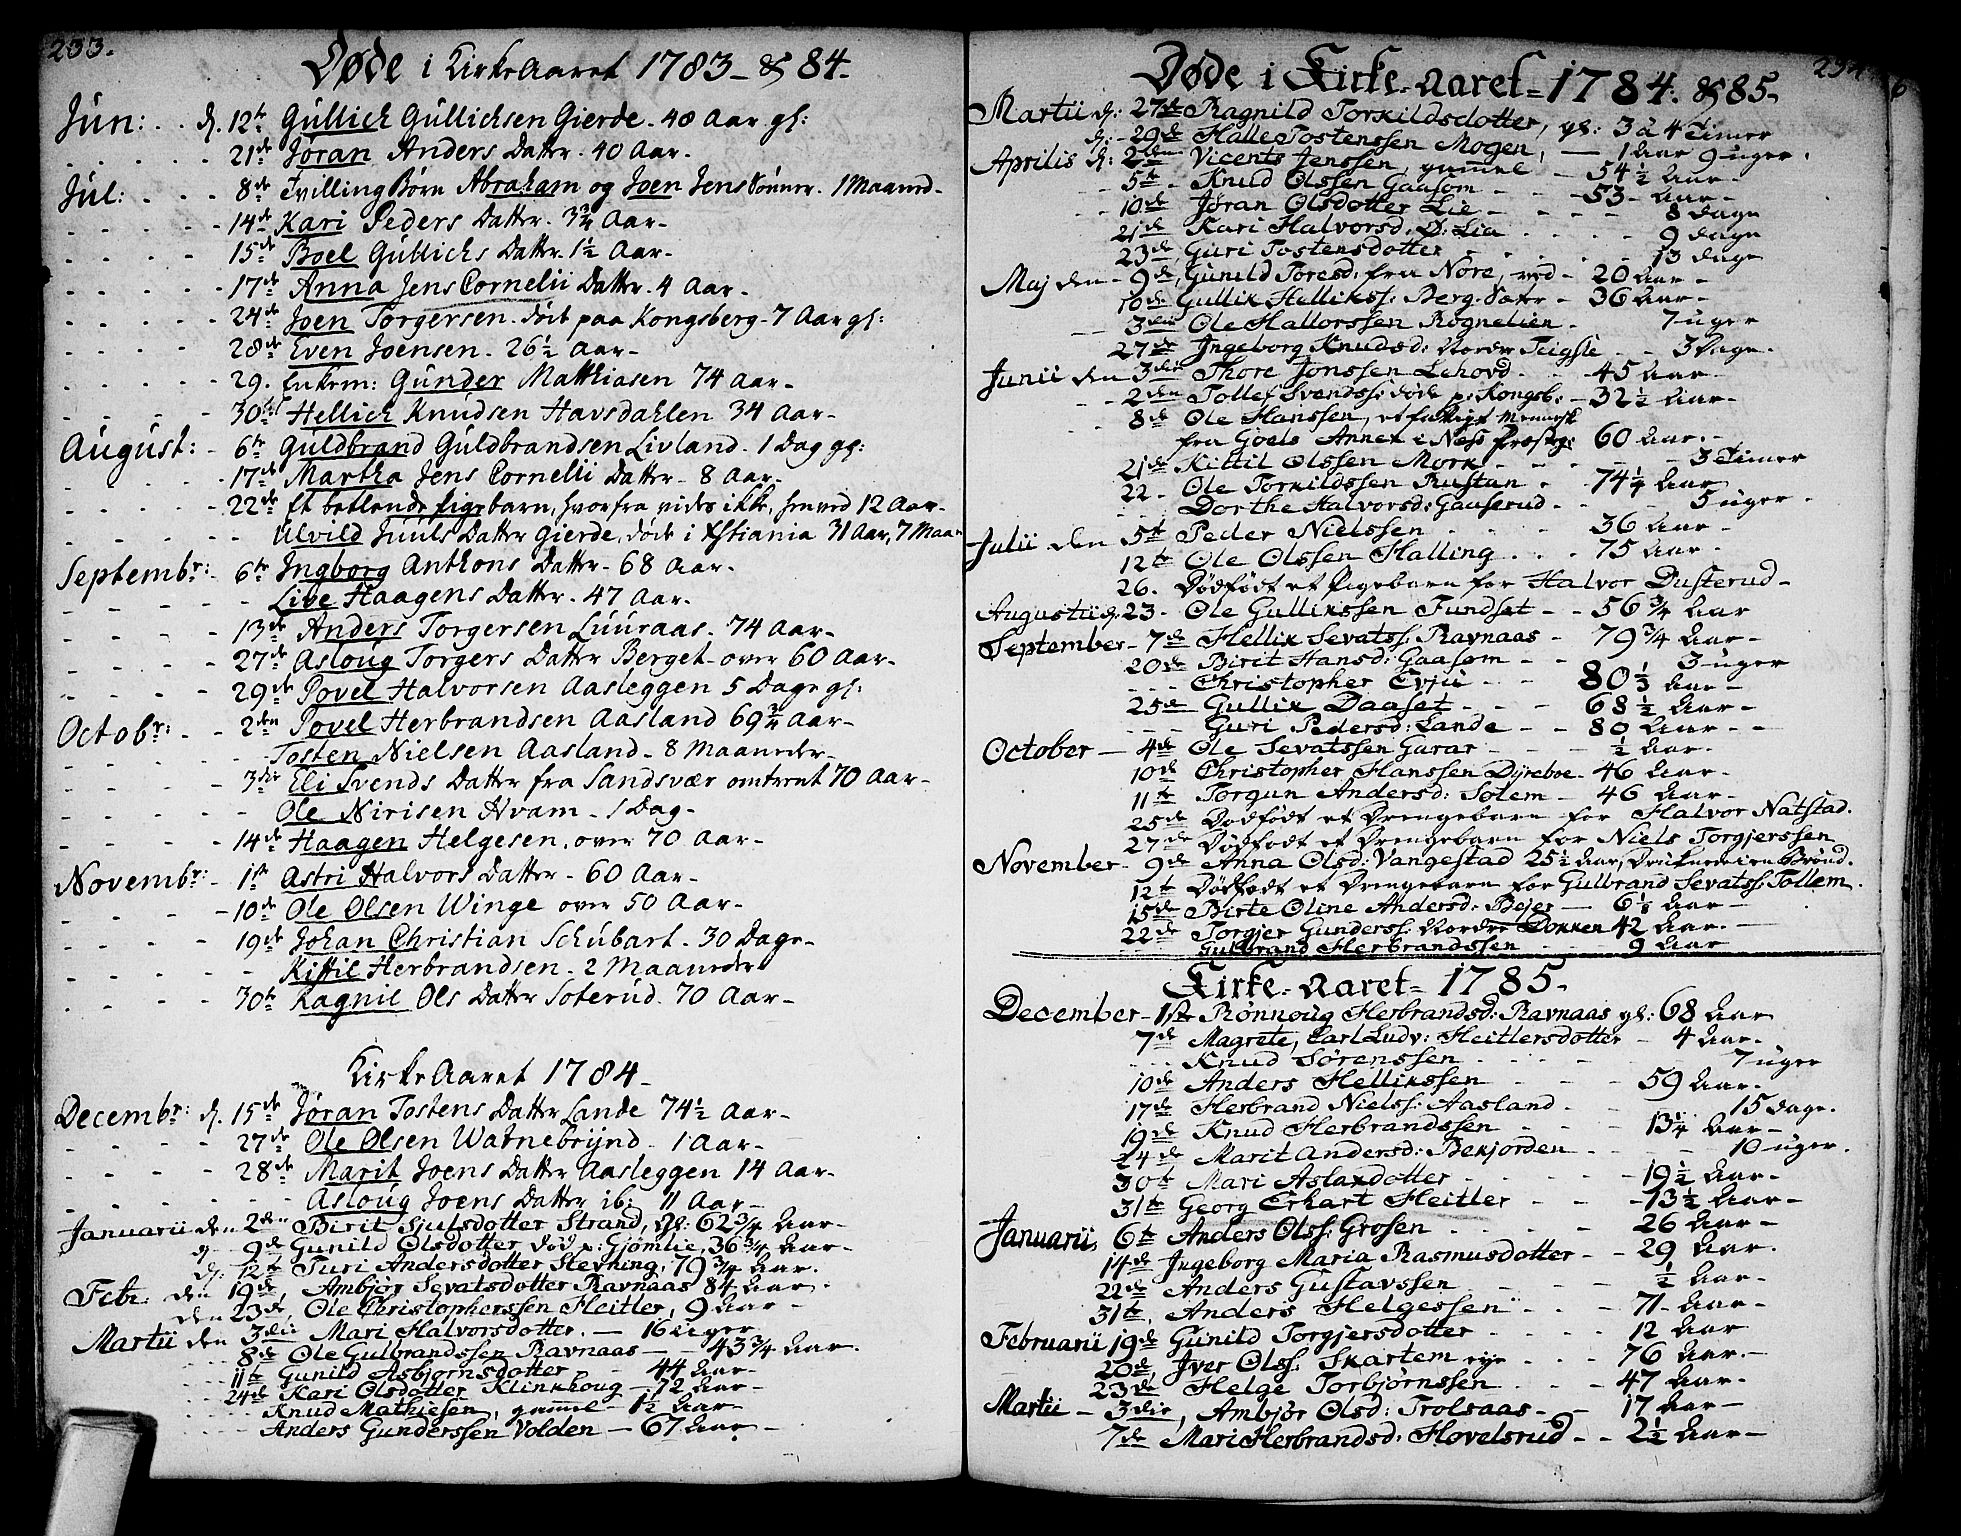 233.
Døde i Kirke Aaret 1783 & 84
Jun: . . d. 12te Gullich Gullichsen Gierde - 48 Aar gl:
21de Jøran Anders Datter - 40 Aar -
Jul: . . . 8de Tvilling Børn Abraham og Joen Jens Sønner - 1 Maaned -
14de Kari Peders Datter - 3 3/4 Aar -
15de Boel Gullichs Datter - 1 1/2 Aar -
17de Anna Jens Cornelii Datter - 4 Aar -
24de Joen Torgersen - død paa Kongsberg - 7 Aar gl:
28de Even Joensen - 26 1/2 Aar -
29. Enkem: Gunder Matthiasen 74 Aar -
30te Hellich Knudsen Havsdahlen 34 Aar -
August: - 6te Guldbrand Guldbrandsen Livland - 1 Dag gl:
17de Martha Jens Cornelii Datter - 8 Aar -
22de Et betlende Pigebarn, hvorfra vides ikke, henved 12 Aar -
Ulvild Juuls Datter Gierde, døde i Xstiania 31 Aar, 7 Maan
Septembr: - 6te Ingborg Anthons Datter - 68 Aar -
Live Haagens Datter - 47 Aar -
13de Anders Torgersen Luuraas - 74 Aar -
27de Asloug Torgers Datter Berget - over 60 Aar -
29de Povel Halvorsen Aasleggen 5 Dage gl:
Octobr: - - 2den Povel Herbrandsen Aasland 69 3/4 Aar -
Tosten Nielsen Aasland - 8 Maaneder -
3die Eli Svends Datter fra Sandsvær omtrent 70 Aar -
Ole Nirisen Hvam - 1 Dag -
14de Haagen Helgesen, over 70 Aar -
Novembr: - 1ste Astri Halvors Datter - 60 Aar -
10de Ole Olsen Winge over 50 Aar -
19de Johan Christian Schubart - 30 Dage -
Kittil Herbrandsen - 2 Maaneder
30te Ragnil Ols Datter Soterud - 70 Aar -
Kirke Aaret 1784 -
Decembr: d. 15de Jøran Tostens Datter Lande 74 1/2 Aar -
27de Ole Olsen Watnebrynd - 1 Aar -
28de Marit Joens Datter Aasleggen 14 Aar -
Asloug Joens Datter ib: 11 Aar -
Januarii den 2den Birit Sjulsdotter Strand, gl: 62 3/4 Aar -
d - 9de Gunild Olsdotter død p: Gjømlie, 36 3/4 Aar -
d: 12te Turi Andersdotter Stevning, 79 3/4 Aar.
Febr: den 19de, Ambjør Sevatsdotter Ravnaas 84 Aar -
den 23de, Ole Christopherssen Heitler, 9 Aar -
Martii den 3die Mari Halvorsdotter. - 16 uger -
8de Ole Gulbrandssen Ravnaas - - 43 3/4 Aar.
11te Gunild Asbjørnsdotter - 44 Aar -
24de Kari Olsdotter Klinkhoug - 72 Aar -
Knud Mathiesen, gammel - 1 1/2 Aar -
Anders Gunderssen Volden - 67 Aar -
Døde i Kirke-Aaret 1784. & 85.
Martii d: 27de Ragnild Torkildsdotter, gl: 3 à 4 Timer
d: 29de Halle Tostenssen Mogen, - 1 Aar 9 uger.
Aprilis d: 2den Vicents Jenssen, gammel - 54 1/2 Aar -
5te - Knud Olssen Gaasom - 53 - Aar -
10de Jøran Olsdotter Lie - 8 dage
21de Kari Halvorsd: Ø: Lia . . 9 dage
23de, Guri Tostensdotter . . 13 dage
Maj den - 9de, Gunild Toresd: fra Nore, ved - 20 Aar -
10de Gullik Helliks: Berg-Sætr - 36 Aar -
3die Ole Hallorssen Rognelien. 7 uger
27de Ingeborg Knudsd: Nordre Teigsle - 3 Dage.
Junii den 3die Thore Jonssen Lehovd. - 45 Aar -
2den Tollef Svends: døde p: Kongsb: - 32 1/2 Aar -
8de Ole Hanssen, et fattigt Mennesk
fra Goels Annex i Ness Præstg: 60 Aar. -
21de Kittil Olssen Mork - - 3 Timer
22. Ole Torkildssen Rustan . - 74 1/4 Aar
Dorthe Halvorsd: Gauserud - 5 uger.
Julii den 5te Peder Nielssen . . 36 Aar -
12te Ole Olssen Halling . . . 75 Aar -
26. Dødfødt et Pigebarn for Halvor Dusterud -
Augustii d. 23. Ole Gullikssen Tundset - - 56 3/4 Aar
September - 7de Hellik Sevats: Ravnaas - 79 3/4 Aar -
20de Birit Hansd: Gaasom - - 3 uger
Christopher Evju - - 80 1/3 Aar -
25de Gullik Daaset - - 68 1/2 Aar -
Guri Pedersd: Lande - - 80 Aar - -
October - 4de Ole Sevatssen Garar - - 1/2 Aar -
10de Christopher Hanssen Dyreboe - 46 Aar -
11te Torgun Andersd: Solem - 46 Aar -
25de Dødfødt et Drengebarn for Halvor Natstad.
27de Dødfødt et Drengebarn for Niels Torgjerssen
November - 9de Anna Olsd: Vangestad 25 1/2 Aar, Druknede i en Brønd.
12te Dødfødt et Drengebarn for Gulbrand Sevats: Tollem.
15de Birte Oline Andersd: Bejer - 6 1/8 Aar -
22de Torgjer Gunders: Nordre Dokken 42 Aar. -
Gulbrand Herbrandssen - 9 Aar
Kirke-Aaret 1785.
December - 1ste Rønnoug Herbrandsd: Ravnaas gl: 68 Aar
7de Magrete, Carl Ludv: Heitlersdotter - 4 Aar.
Knud Sørenssen - 7 uger
10de Anders Hellikssen - - 59 Aar.
17de Herbrand Niels: Aasland - 15 dage.
19de Knud Herbrandssen - 13 1/4 Aar -
24de Marit Andersd: Bekjorden - 10 uger.
30te Mari Aslakdotter - - 19 1/2 Aar -
31te Georg Erhart Heitler - - 13 1/2 Aar -
Januarii, 6te Anders Ols: Grosen - - 26 Aar -
14de Ingeborg Maria Rasmusdotter - - 29 Aar.
22de Anders Gustavssen - - 1/2 Aar -
31te, Anders Helgessen - - 71 - Aar -
Februarii 19de Gunild Torgjersdotter . . 12 Aar
20de Iver Ols: Skartem eje . . 76 Aar. -
23de Helge Torbjørnssen . - 47 Aar -
Martii - 3die, Ambjør Olsd: Trolsaas - - 17 Aar -
7de Mari Herbrandsd: Hovelsrud - - 2 1/2 Aar -